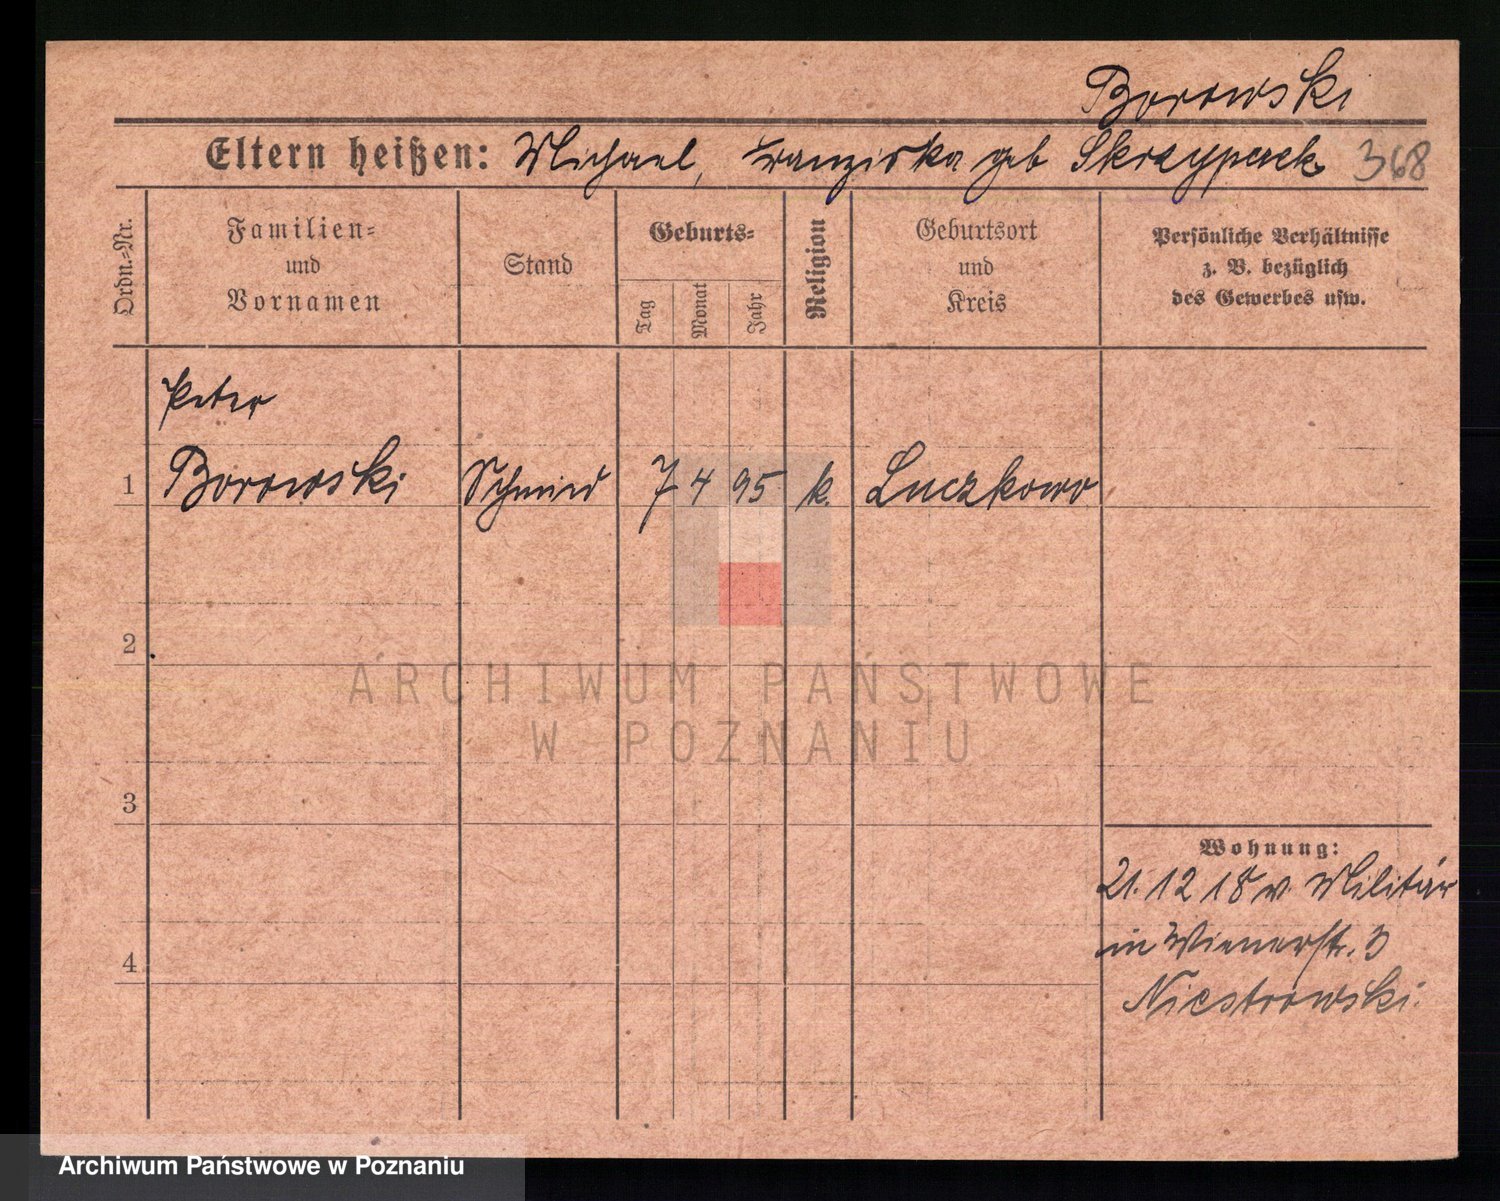 Borowski
Eltern heißen: Michael, Franziska geb Skrzypczak 368
Ordn.-Nr.
Familien-
und
Vornamen
Stand
Geburts-
Tag
Monat
Jahr
Religion
Geburtsort
und
Kreis
Persönliche Verhältnisse
z. B. bezüglich
des Gewerbes usw.
Peter
1 Borowski Schmied 7 4 95 k. Luczkowo
2
ARCHIWUM PAŃSTWOWE
W POZNANIU
3
Wohnung:
21. 12 18 v. Militär
in Wienerstr. 3
4
Niestrowski.
Archiwum Państwowe w Poznaniu